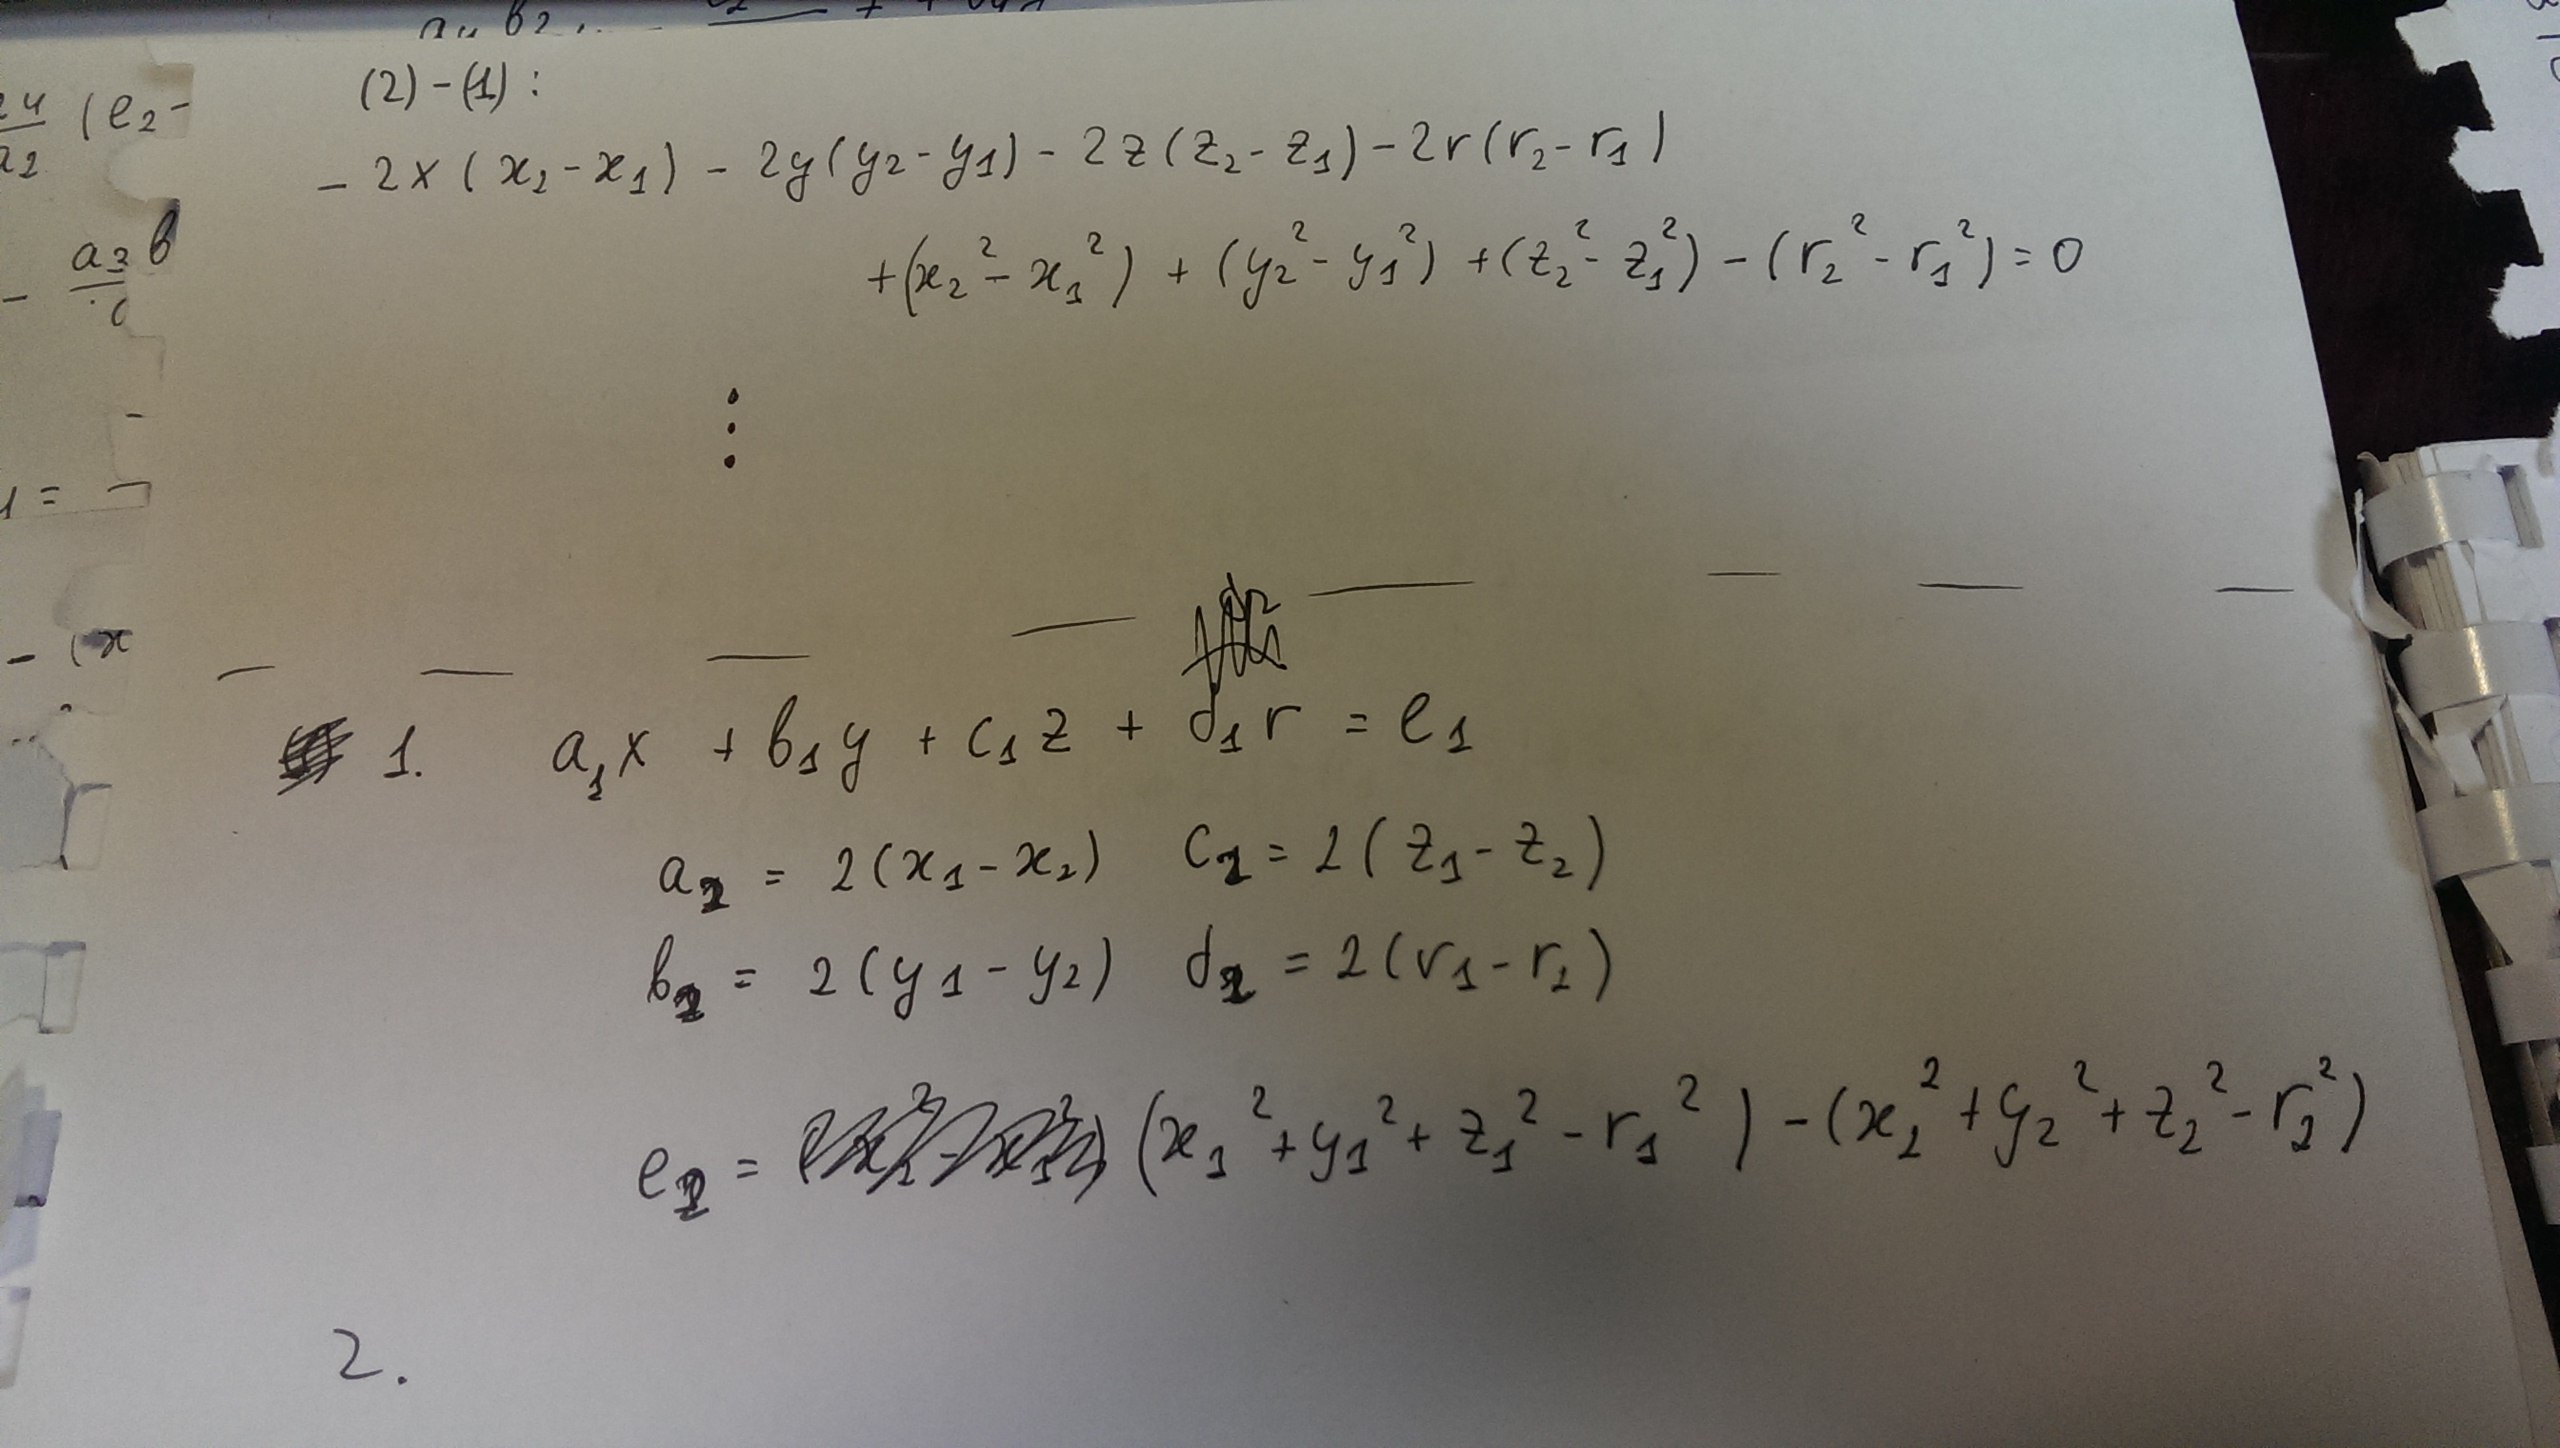 (2) - (1) :
- 2x (x₂ - x₁) - 2y (y₂ - y₁) - 2z (z₂ - z₁) - 2r (r₂ - r₁)
+ (x₂² - x₁²) + (y₂² - y₁²) + (z₂² - z₁²) - (r₂² - r₁²) = 0
⋮
1. a₁x + b₁y + c₁z + d₁r = e₁
a₁ = 2(x₁ - x₂) c₁ = 2(z₁ - z₂)
b₁ = 2(y₁ - y₂) d₁ = 2(r₁ - r₂)
e₁ = (x₁² + y₁² + z₁² - r₁²) - (x₂² + y₂² + z₂² - r₂²)
2.